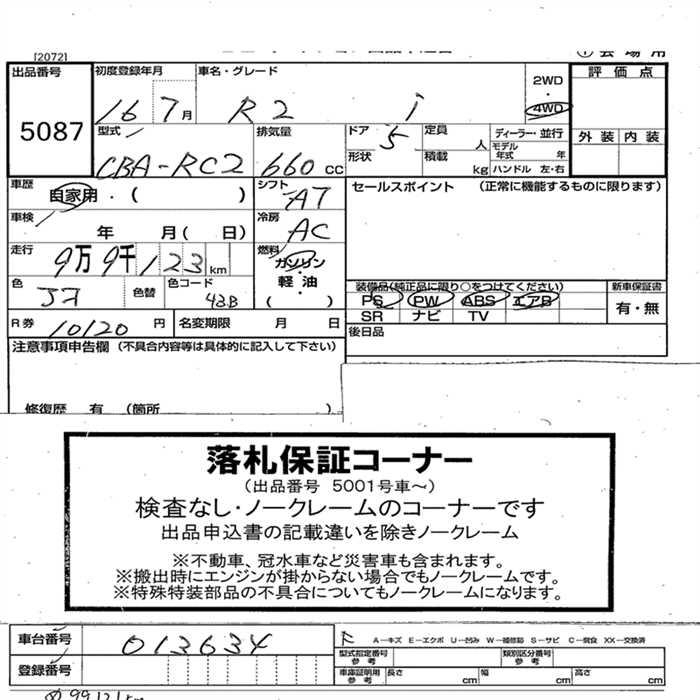 [2072]
出品番号 初度登録年月 車名・グレード 2WD 評価点
5087 16 7月 R2 i ・ 4WD
型式 排気量 ドア 5 定員 人 ディーラー・並行 外装 内装
CBA-RC2 660cc 形状 積載 kg モデル年式 年 ハンドル 左・右
車歴 自家用・( ) シフト AT セールスポイント (正常に機能するものに限ります)
車検 年 月(日) 冷房 AC
走行 9万9千123km 燃料 ガソリン・軽油・( )
色 コン 色替 色コード 43B 装備品(純正品に限り○をつけてください) 新車保証書
PS PW ABS エアB 有・無
SR ナビ TV
R券 10120円 名変期限 月 日 後日品
注意事項申告欄 (不具合内容等は具体的に記入して下さい)
修復歴 有 (箇所 )
落札保証コーナー
(出品番号 5001号車～)
検査なし・ノークレームのコーナーです
出品申込書の記載違いを除きノークレーム
※不動車、冠水車など災害車も含まれます。
※搬出時にエンジンが掛からない場合でもノークレームです。
※特殊特装部品の不具合についてもノークレームになります。
車台番号 013634 A―キズ E―エクボ U―凹み W―補修跡 S―サビ C―腐食 XX―交換済
登録番号 型式指定番号 参考 類別区分番号 参考
車庫証明用 参考 長さ cm 幅 cm 高さ cm